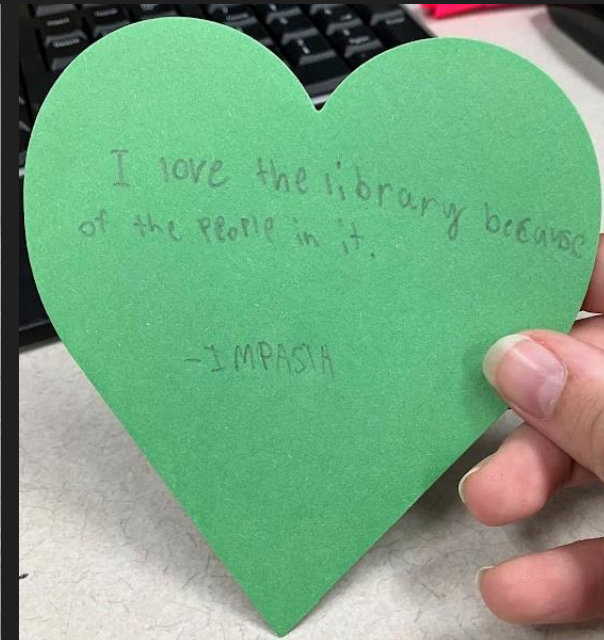 I love the library because
of the PeoPle in it.
-IMPASIA